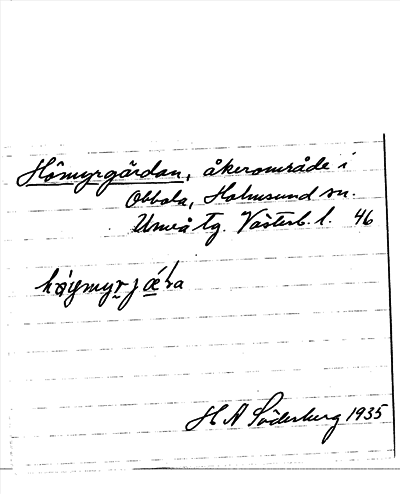 Hömyrgärdan, åkerområde i
Obbola, Holmsund sn.
Umeå tg. Västerb. l. 46
H A Söderberg 1935